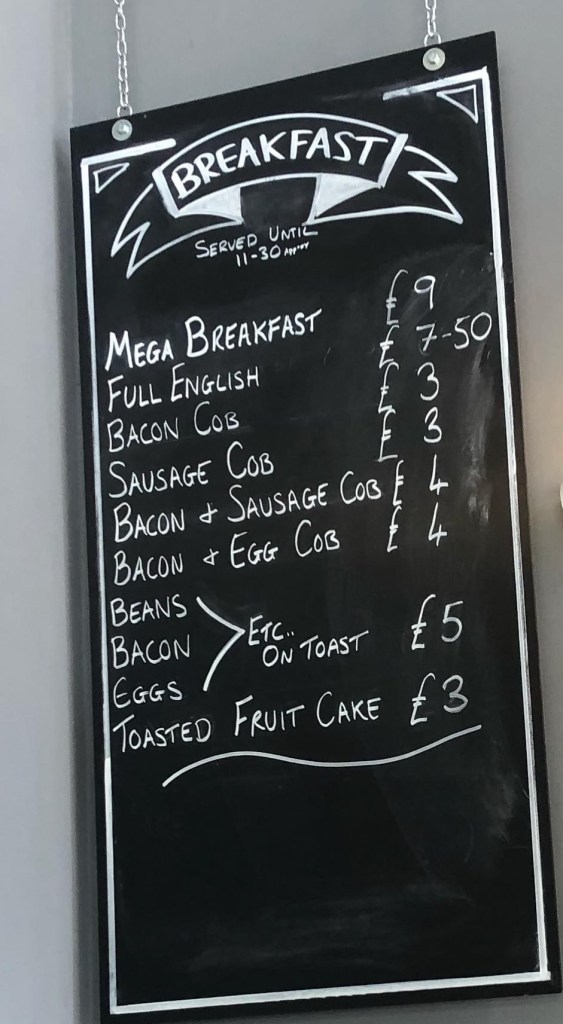 BREAKFAST
SERVED UNTIL
11-30 APP'OX
MEGA BREAKFAST £9
FULL ENGLISH £7-50
BACON COB £3
SAUSAGE COB £3
BACON & SAUSAGE COB £4
BACON & EGG COB £4
BEANS
BACON
EGGS
ETC..
ON TOAST £5
TOASTED FRUIT CAKE £3